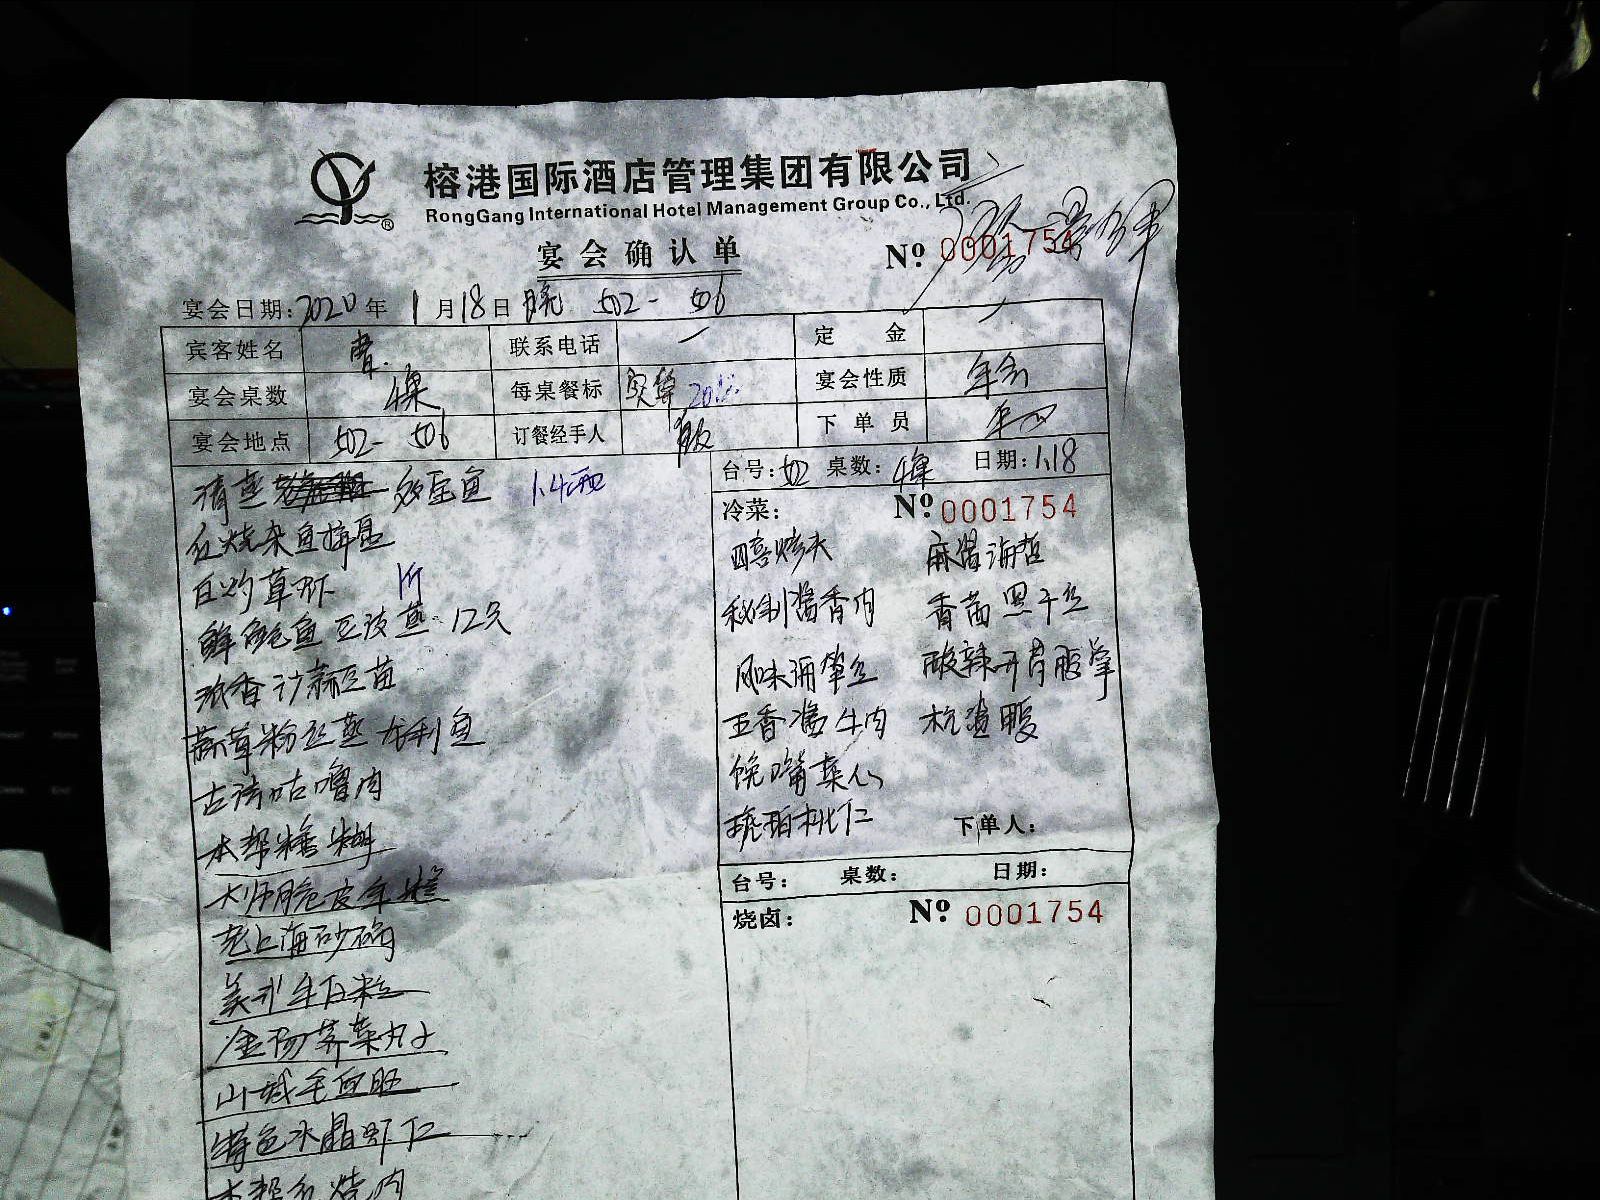 榕港国际酒店管理集团有限公司
RongGang International Hotel Management Group Co., Ltd.
宴会确认单 № 0001754
宴会日期: 2020年 1月18日 晚 502- 506
宾客姓名 曹. 联系电话 定金
宴会桌数 4桌 每桌餐标 实算 宴会性质 年会
宴会地点 502- 506 订餐经手人 下单员
台号: 502 桌数: 4桌 日期: 1.18
清蒸 多宝鱼 1.4两
红烧杂鱼
白灼草虾 1斤
鲜鲍鱼豆豉蒸 12只
浓香沙蒜豆苗
蒜茸粉丝蒸龙利鱼
古法咕噜肉
本帮
大师脆皮年糕
老上海砂锅
美洲牛仔粒
金汤荠菜丸子
山城毛血旺
特色水晶虾仁
本帮红烧肉
冷菜: № 0001754
四喜烤夫 麻酱海哲
秘制酱香肉 香茴黑干丝
风味酒 酸辣开胃
五香酱牛肉
馋嘴菜心
琥珀桃仁 下单人:
台号: 桌数: 日期:
烧卤: № 0001754